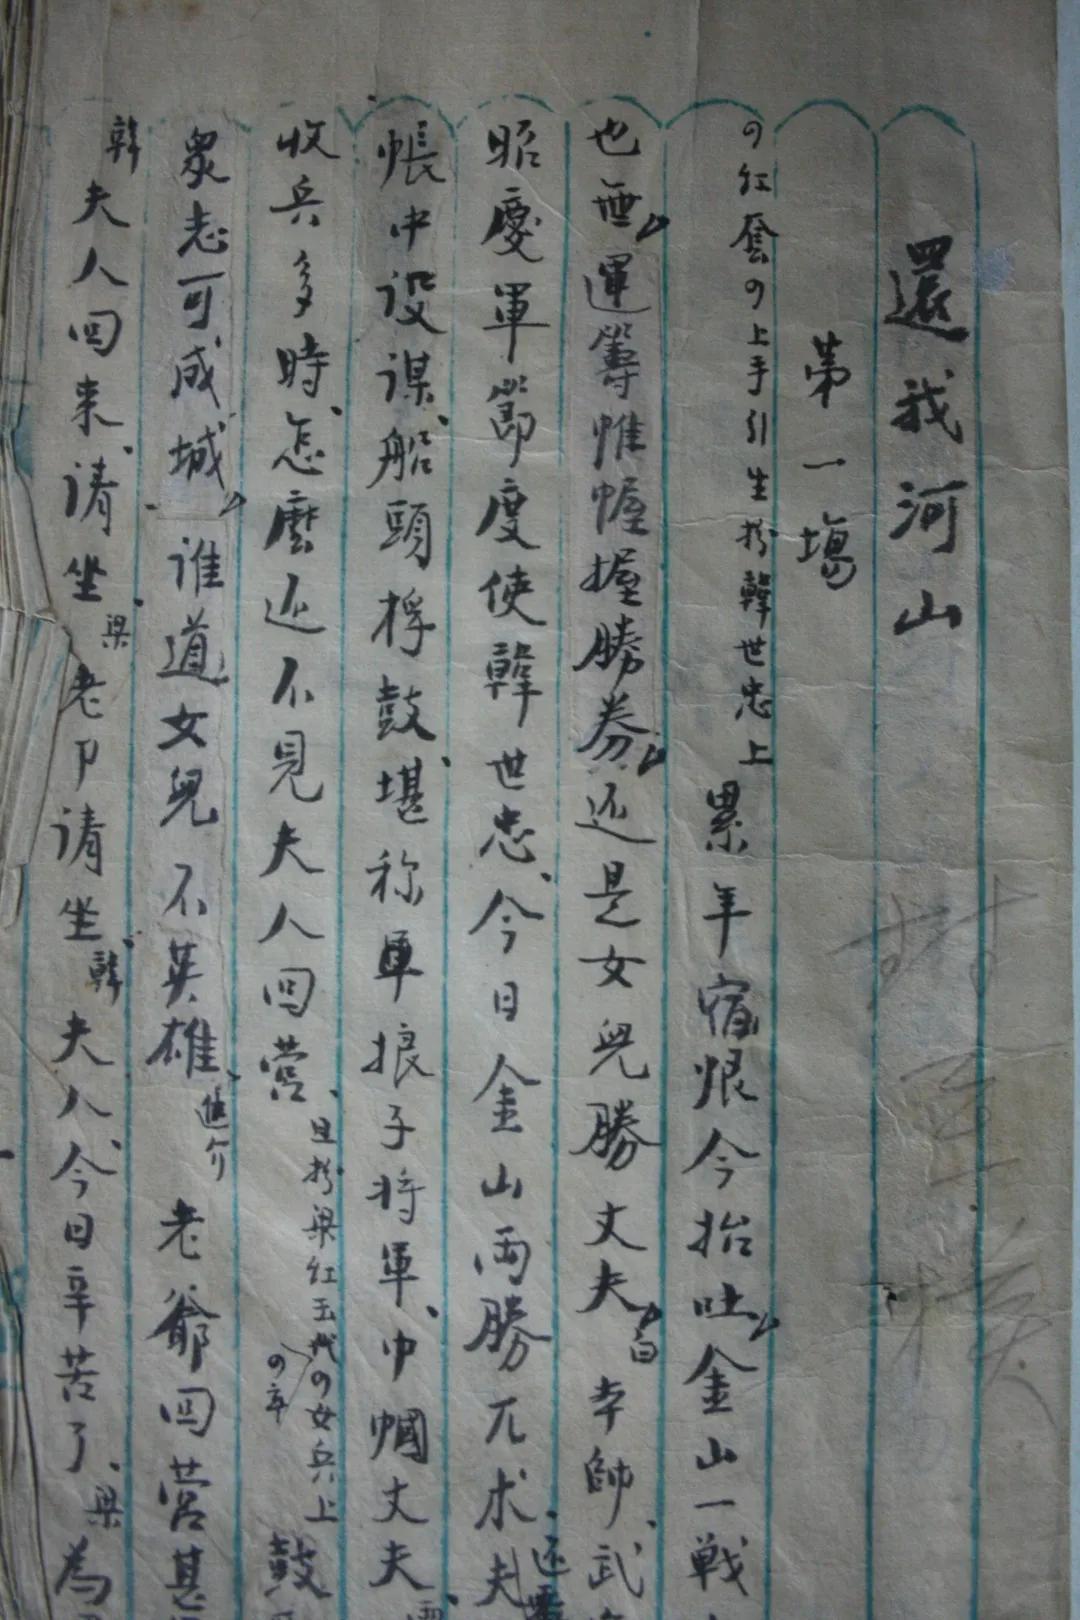 還我河山
第一場
の紅套の上手引生扮韓世忠上 累年宿恨今抬吐金山一戰
也無運籌惟幄握勝券还是女兒勝丈夫 白 本帥武
昭慶軍節度使韓世忠今日金山両勝兀术夫
帳中设谋船頭桴鼓堪称軍娘子将軍巾幗丈夫
收兵多時怎麽还不見夫人回营 旦扮梁红玉代の女兵上 鼓
衆志可成城谁道女兒不英雄 進介 老爺回营甚
韓 夫人回来请坐 梁 老卩请坐 韓 夫人今日辛苦了 梁 為